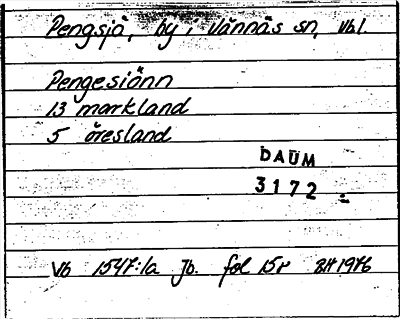 Pengsjö, by i Vännäs sn, Vbl.
Pengesiönn
13 markland
5 öresland
DAUM
3172
Vb 1547:1a Jb. fol 15r BH 1976